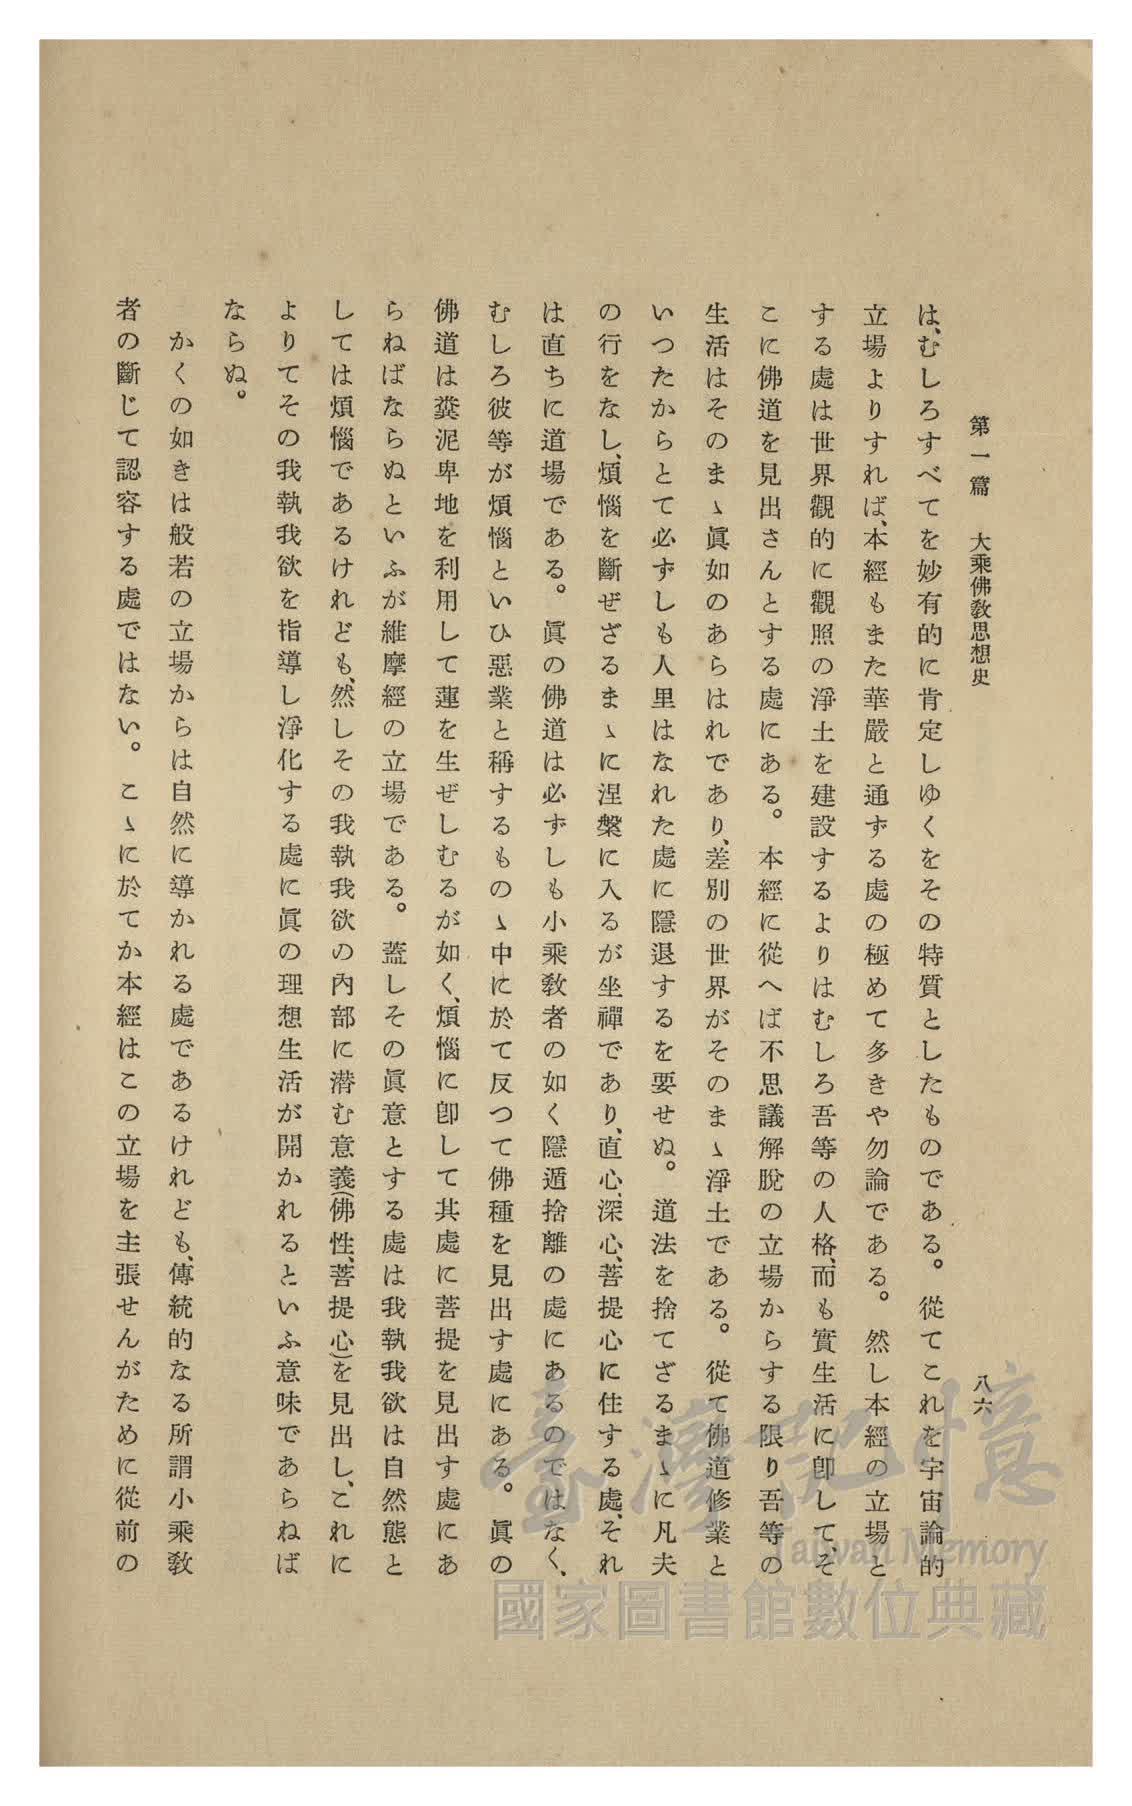 第一篇　大乘佛敎思想史
八六
は、むしろすべてを妙有的に肯定しゆくをその特質としたものである。從てこれを宇宙論的
立場よりすれば、本經もまた華嚴と通ずる處の極めて多きや勿論である。然し本經の立場と
する處は世界觀的に觀照の淨土を建設するよりはむしろ吾等の人格、而も實生活に卽して、そ
こに佛道を見出さんとする處にある。本經に從へば不思議解脫の立場からする限り吾等の
生活はそのまゝ眞如のあらはれであり、差別の世界がそのまゝ淨土である。從て佛道修業と
いつたからとて必ずしも人里はなれた處に隱退するを要せぬ。道法を捨てざるまゝに凡夫
の行をなし、煩惱を斷ぜざるまゝに涅槃に入るが坐禪であり、直心、深心、菩提心に住する處、それ
は直ちに道場である。眞の佛道は必ずしも小乘敎者の如く隱遁捨離の處にあるのではなく、
むしろ彼等が煩惱といひ惡業と稱するものゝ中に於て反つて佛種を見出す處にある。眞の
佛道は糞泥卑地を利用して蓮を生ぜしむるが如く、煩惱に卽して其處に菩提を見出す處にあ
らねばならぬといふが維摩經の立場である。蓋しその眞意とする處は我執我欲は自然態と
しては煩惱であるけれども、然しその我執我欲の內部に潜む意義(佛性、菩提心)を見出し、これに
よりてその我執我欲を指導し淨化する處に眞の理想生活が開かれるといふ意味であらねば
ならぬ。
かくの如きは般若の立場からは自然に導かれる處であるけれども、傳統的なる所謂小乘敎
者の斷じて認容する處ではない。こゝに於てか本經はこの立場を主張せんがために從前の
臺灣記憶
Taiwan Memory
國家圖書館數位典藏